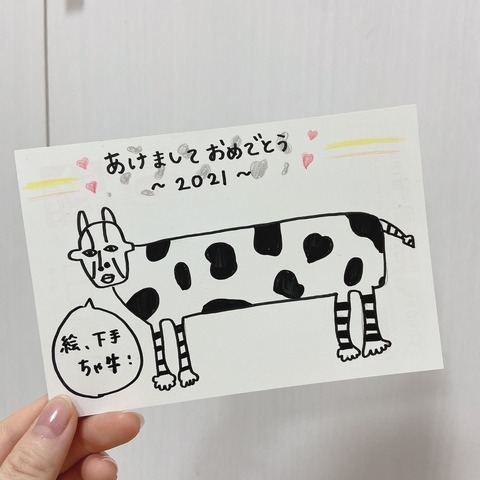 あけまして おめでとう
～2021～
絵、下手
ちゃ牛：